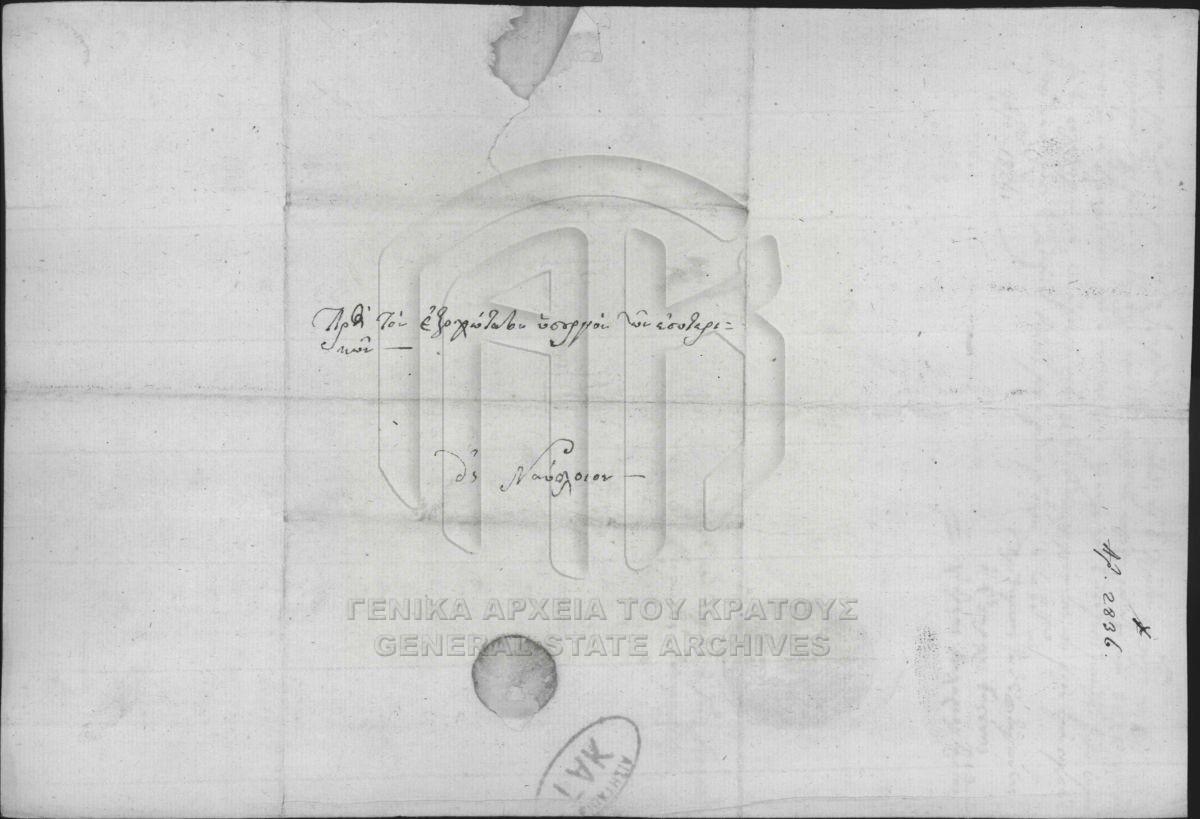 Πρὸς τὸν ἐξοχώτατον ὑπουργὸν τῶν ἐσωτερι=
κῶν —
εἰς Ναύπλοιον —
Ἀρ. 2836.
ΓΕΝΙΚΑ ΑΡΧΕΙΑ ΤΟΥ ΚΡΑΤΟΥΣ
GENERAL STATE ARCHIVES
ΓΑΚ